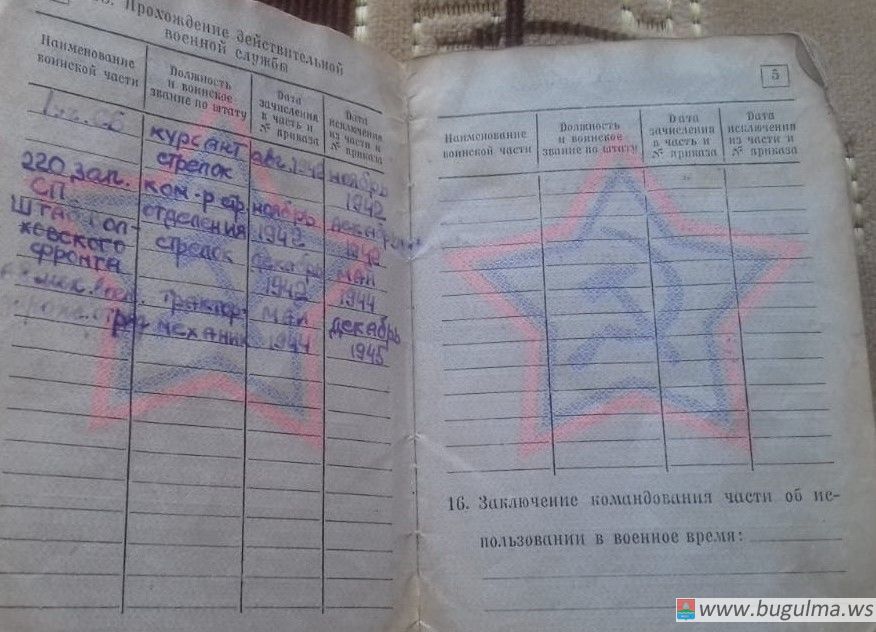 Прохождение действительной
военной службы
Наименование
воинской части
Должность
и воинское
звание по штату
Дата
зачисления
в часть и
№ приказа
Дата
исключения
из части и
№ приказа
курсант авг. 1942 ноябрь
стрелок 1942
220 зап. ком-р ноябрь декабрь
СП. отделения 1942 1942
Штаб Вол- стрелок декабрь май
ховского 1942 1944
фронта
трактор. май декабрь
механик 1944 1945
5
Наименование
воинской части
Должность
и воинское
звание по штату
Дата
зачисления
в часть и
№ приказа
Дата
исключения
из части и
№ приказа
16. Заключение командования части об ис-
пользовании в военное время:
www.bugulma.ws